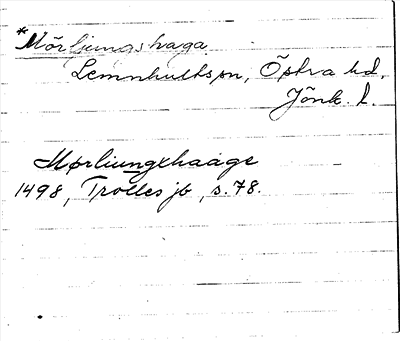 *Mörljungshaga
Lemnhults sn, Östra hd,
Jönk. l.
Mørliungxhaage
1498, Trolles jb, s. 78.